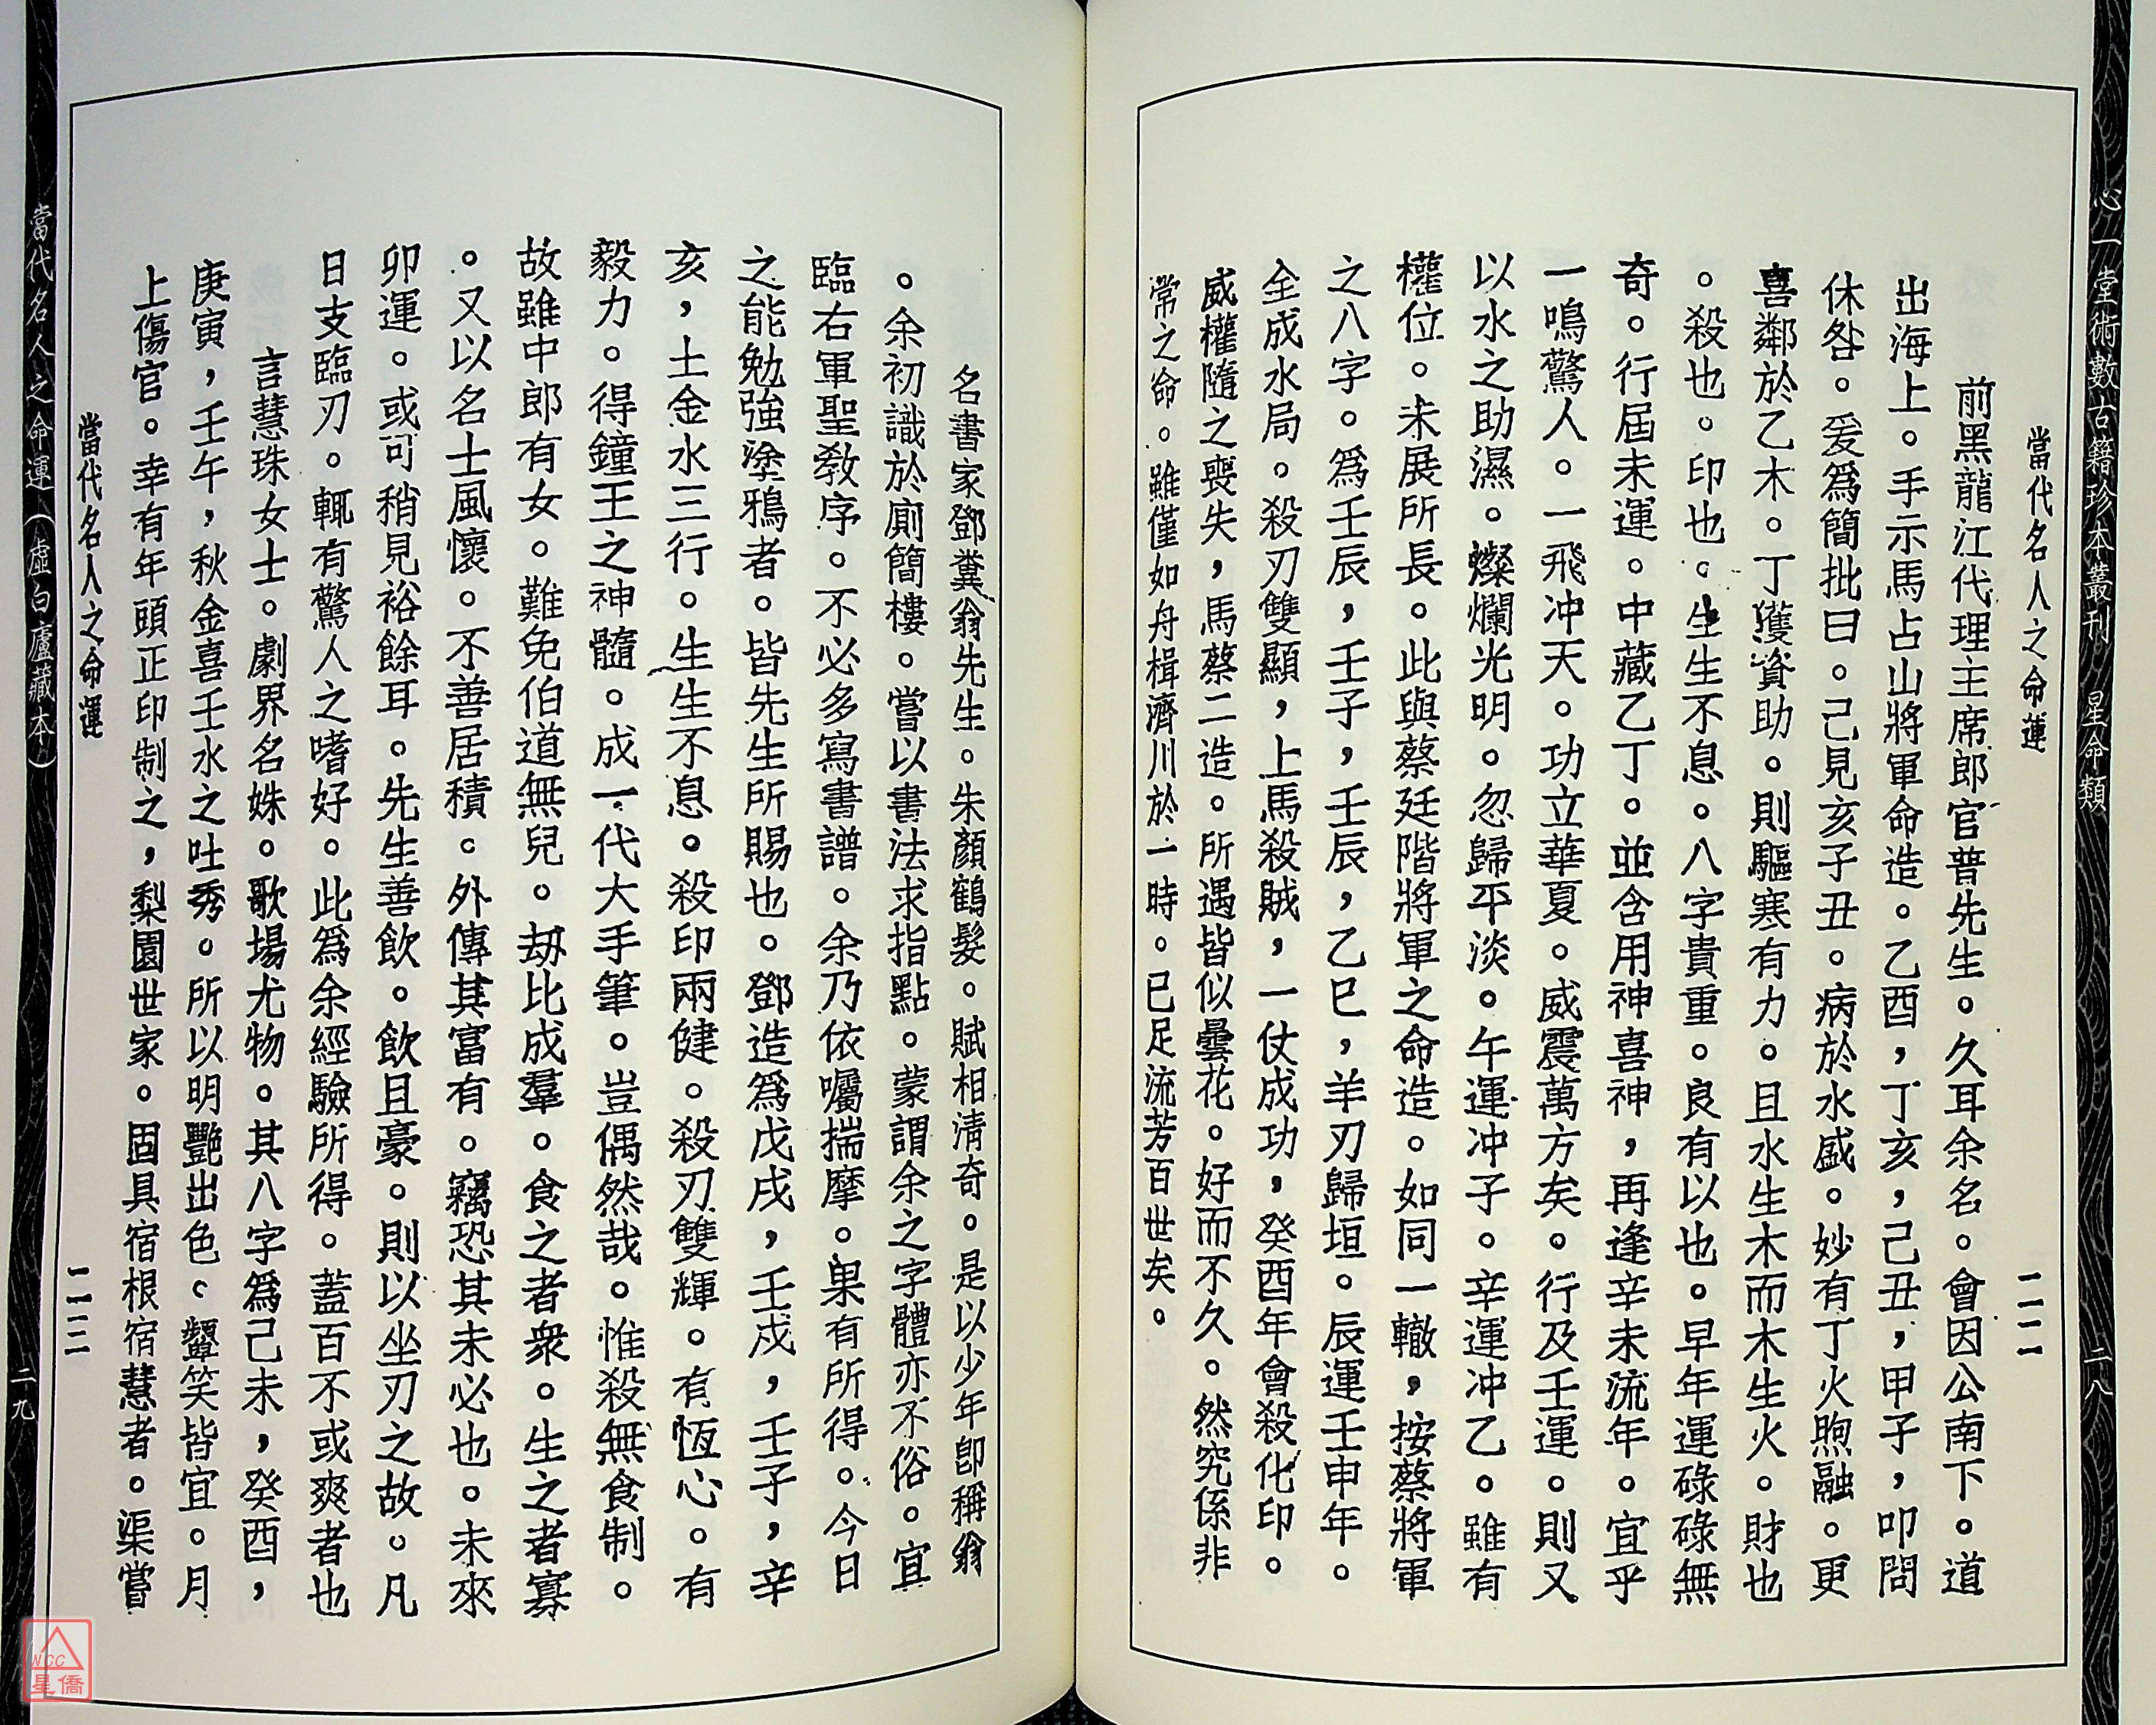 心一堂術數古籍珍本叢刊 星命類
二八
當代名人之命運
二二
前黑龍江代理主席郎官普先生。久耳余名。會因公南下。道
出海上。手示馬占山將軍命造。乙酉，丁亥，己丑，甲子，叩問
休咎。爰爲簡批曰。己見亥子丑。病於水盛。妙有丁火煦融。更
喜鄰於乙木。丁獲資助。則驅寒有力。且水生木而木生火。財也
。殺也。印也。生生不息。八字貴重。良有以也。早年運碌碌無
奇。行屆未運。中藏乙丁。並含用神喜神，再逢辛未流年。宜乎
一鳴驚人。一飛冲天。功立華夏。威震萬方矣。行及壬運。則又
以水之助濕。燦爛光明。忽歸平淡。午運冲子。辛運冲乙。雖有
權位。未展所長。此與蔡廷階將軍之命造。如同一轍，按蔡將軍
之八字。爲壬辰，壬子，壬辰，乙巳，羊刃歸垣。辰運壬申年。
全成水局。殺刃雙顯，上馬殺賊，一仗成功，癸酉年會殺化印。
威權隨之喪失，馬蔡二造。所遇皆似曇花。好而不久。然究係非
常之命。雖僅如舟楫濟川於一時。已足流芳百世矣。
名書家鄧糞翁先生。朱顏鶴髮。賦相清奇。是以少年卽稱翁
。余初識於廁簡樓。嘗以書法求指點。蒙謂余之字體亦不俗。宜
臨右軍聖教序。不必多寫書譜。余乃依囑揣摩。果有所得。今日
之能勉強塗鴉者。皆先生所賜也。鄧造爲戊戌，壬戌，壬子，辛
亥，土金水三行。生生不息。殺印兩健。殺刃雙輝。有恆心。有
毅力。得鐘王之神髓。成一代大手筆。豈偶然哉。惟殺無食制。
故雖中郎有女。難免伯道無兒。刼比成羣。食之者衆。生之者寡
。又以名士風懷。不善居積。外傳其富有。竊恐其未必也。未來
卯運。或可稍見裕餘耳。先生善飲。飲且豪。則以坐刃之故。凡
日支臨刃。輒有驚人之嗜好。此爲余經驗所得。蓋百不或爽者也
言慧珠女士。劇界名姝。歌場尤物。其八字爲己未，癸酉，
庚寅，壬午，秋金喜壬水之吐秀。所以明艷出色。顰笑皆宜。月
上傷官。幸有年頭正印制之，梨園世家。固具宿根宿慧者。渠嘗
當代名人之命運
二三
當代名人之命運（虛白廬藏本）
二九
NCC
星僑